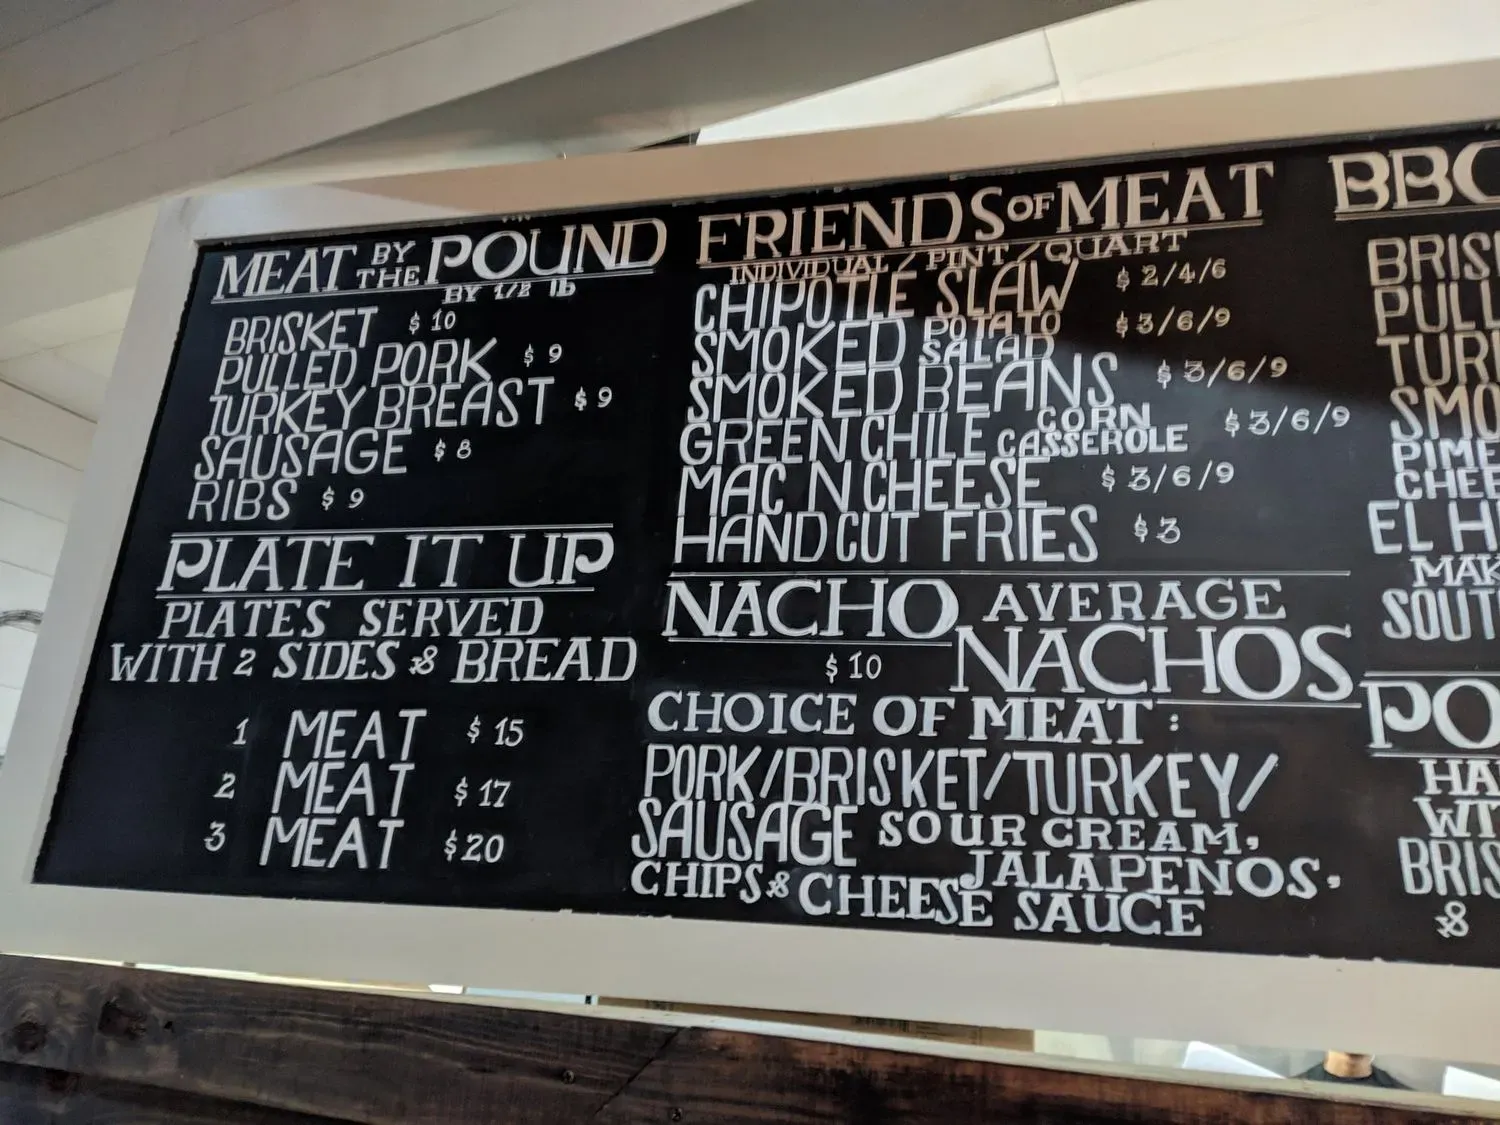 MEAT BY THE POUND
BY 1/2 lb
BRISKET $10
PULLED PORK $9
TURKEY BREAST $9
SAUSAGE $8
RIBS $9
PLATE IT UP
PLATES SERVED
WITH 2 SIDES & BREAD
1 MEAT $15
2 MEAT $17
3 MEAT $20
FRIENDS OF MEAT
INDIVIDUAL / PINT / QUART
CHIPOTLE SLAW $2/4/6
SMOKED POTATO SALAD $3/6/9
SMOKED BEANS $3/6/9
GREEN CHILE CORN CASSEROLE $3/6/9
MAC N CHEESE $3/6/9
HANDCUT FRIES $3
NACHO AVERAGE
$10 NACHOS
CHOICE OF MEAT:
PORK/BRISKET/TURKEY/
SAUSAGE SOUR CREAM,
JALAPENOS,
CHIPS & CHEESE SAUCE
BBQ
BRIS
PULL
TUR
SMO
PIME
CHEE
EL H
MAK
SOUT
PO
HA
WIT
BRIS
&